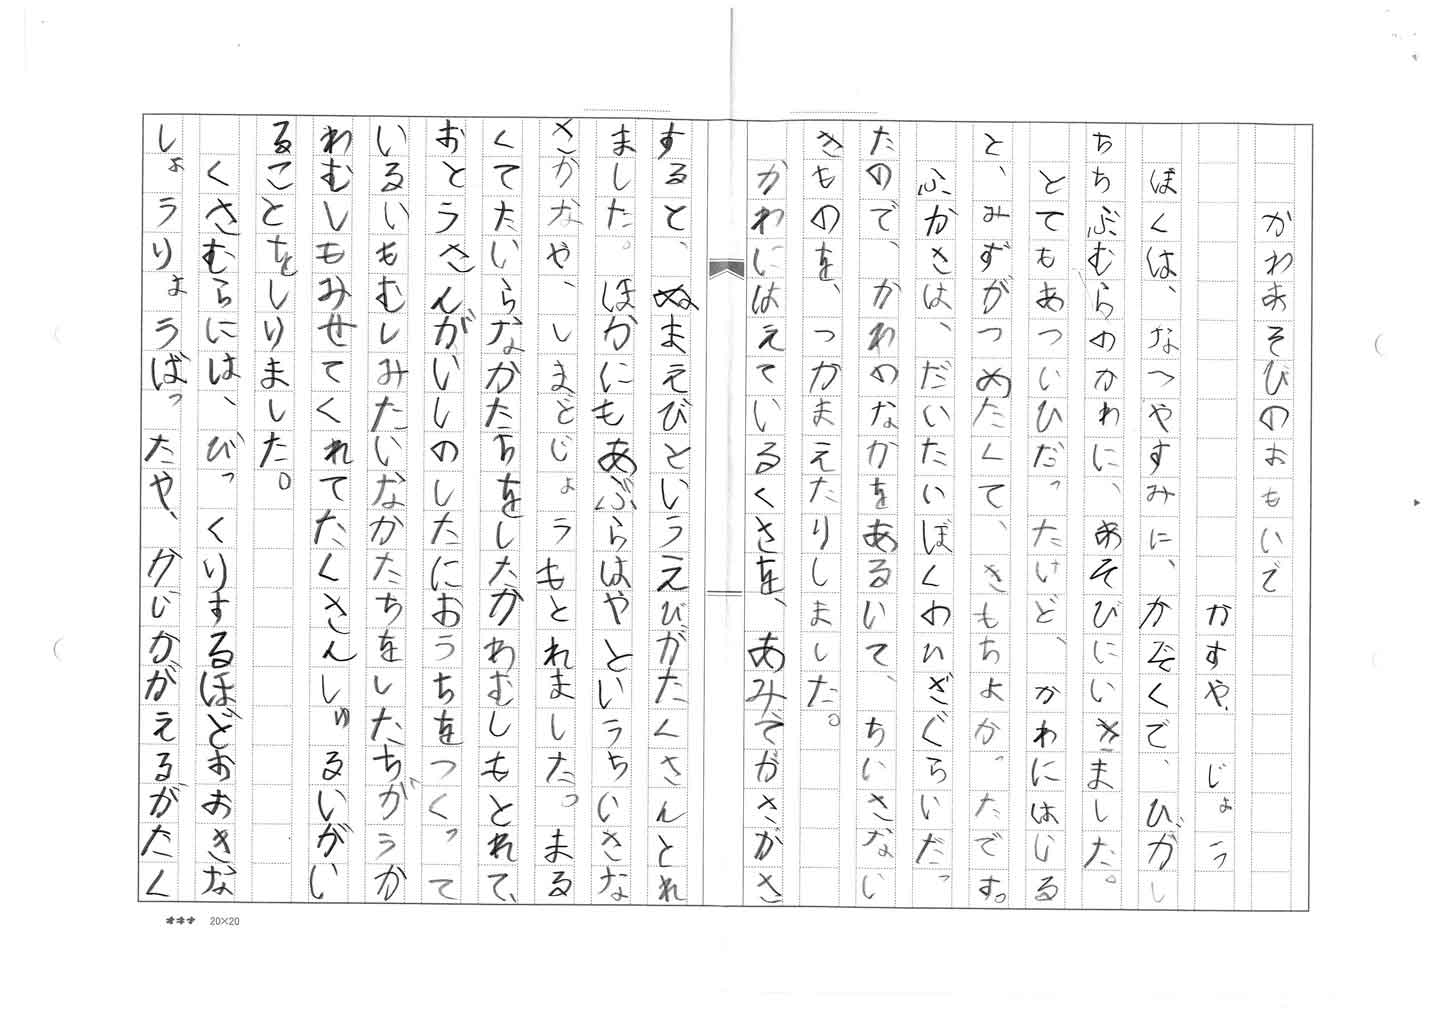 かわあそびのおもいで
かすや　じょう
ぼくは、なつやすみに、かぞくで、ひがし
ちちぶむらのかわに、あそびにいきました。
とてもあつい ひだったけど、かわにはいる
と、みずがつめたくて、きもちよかったです。
ふかさは、だいたいぼくのひざぐらいだっ
たので、かわのなかをあるいて、ちいさない
きものを、つかまえたりしました。
かわにはえているくさを、あみでがさがさ
すると、ぬまえびというえびがたくさんとれ
ました。ほかにもあぶらはやというちいさな
さかなや、しまどじょうもとれました。まる
くてたいらなかたちをしたかわむしもとれて、
おとうさんがいしのしたにおうちをつくって
いるいもむしみたいなかたちをしたちがうか
わむしもみせてくれてたくさんしゅるいがい
ることをしりました。
くさむらには、びっくりするほどおおきな
しょうりょうばったや、かじかがえるがたく
オキナ 20×20